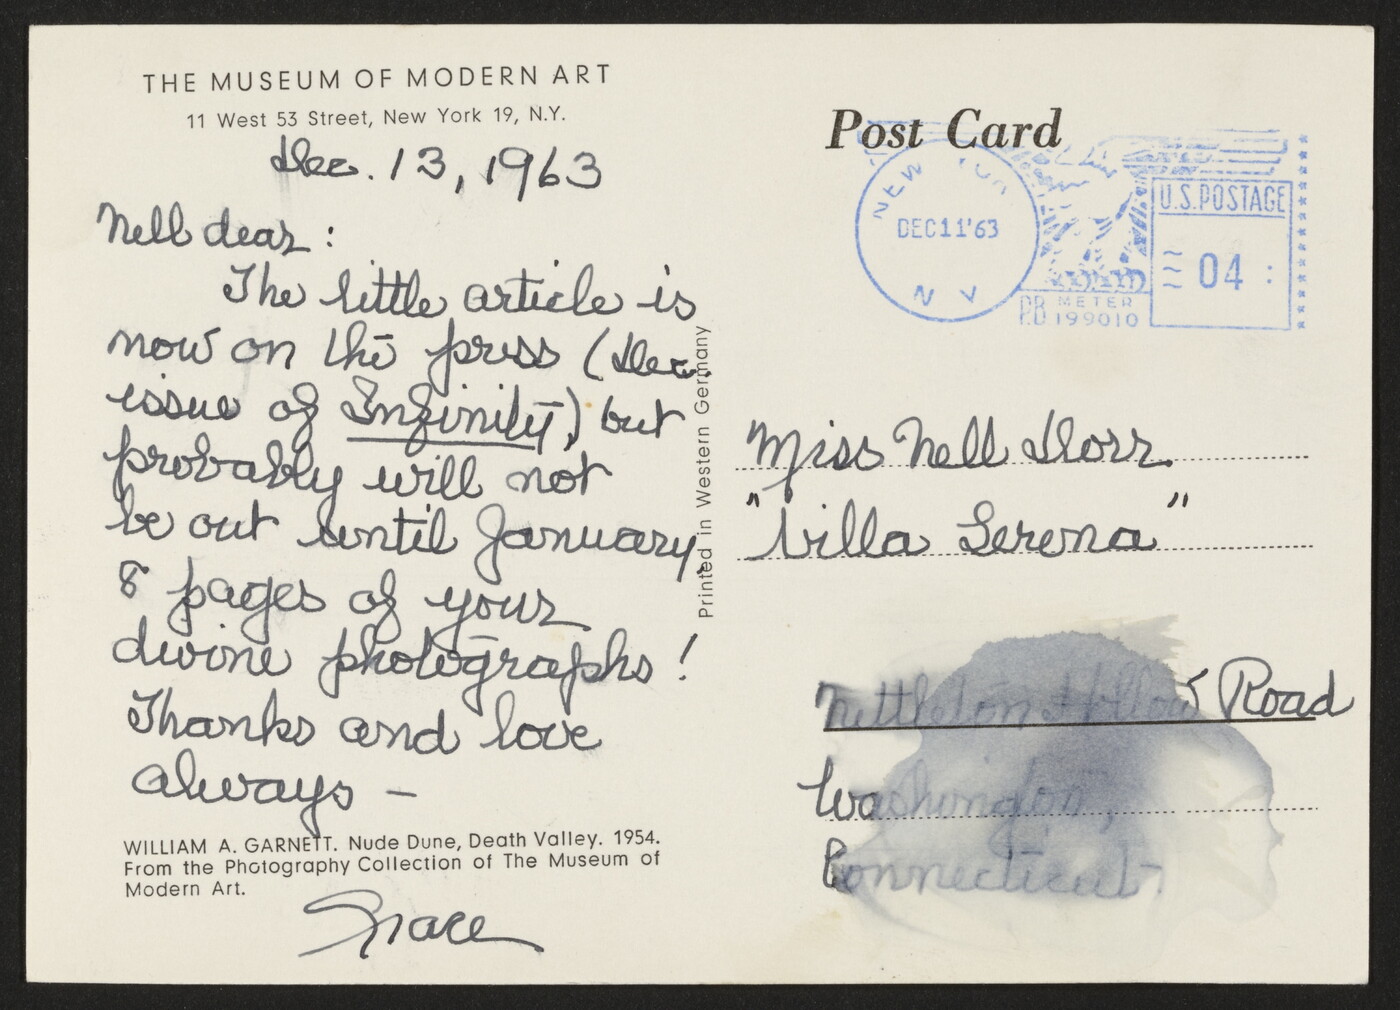 THE MUSEUM OF MODERN ART
11 West 53 Street, New York 19, N.Y.
Dec. 13, 1963
Nell dear:
The little article is
now on the press (Dec.
issue of Infinity) but
probably will not
be out until January.
8 pages of your
divine photographs!
Thanks and love
always -
WILLIAM A. GARNETT. Nude Dune, Death Valley. 1954.
From the Photography Collection of The Museum of
Modern Art.
Grace
Printed in Western Germany
Post Card
NEW YORK
DEC 11 '63
N Y
U.S. POSTAGE
04
P.B. METER
199010
Miss Nell Dorr
"Villa Serena"
Nettleton Hollow Road
Washington,
Connecticut